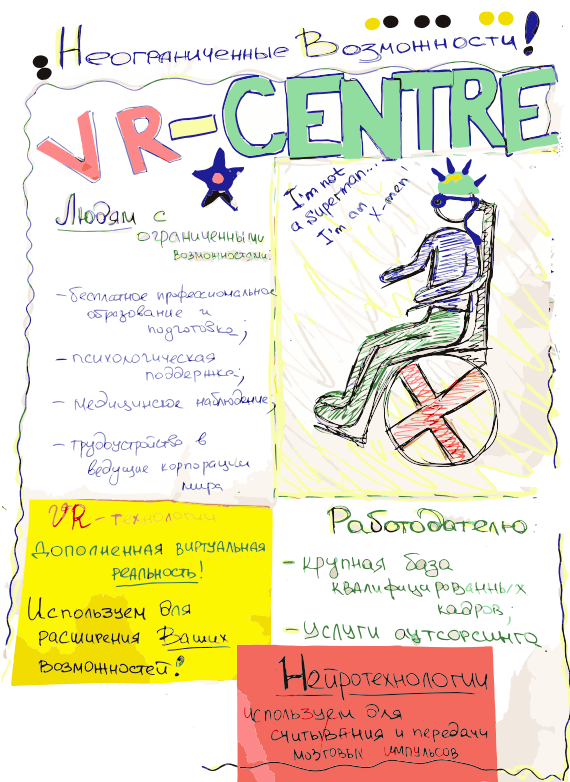 Неограниченные Возможности!
VR-CENTRE
I'm not
a Superman...
I'm an X-men
Людям с
ограниченными
возможностями:
- бесплатное профессиональное
образование и
подготовка;
- психологическая
поддержка;
- медицинское наблюдение;
- трудоустройство в
ведущие корпорации
мира.
VR-технологии
Дополненная виртуальная
реальность!
Используем для
расширения Ваших
возможностей!
Работодателю:
- крупная база
квалифицированных
кадров;
- услуги аутсорсинга
Нейротехнологии
используем для
считывания и передачи
мозговых импульсов